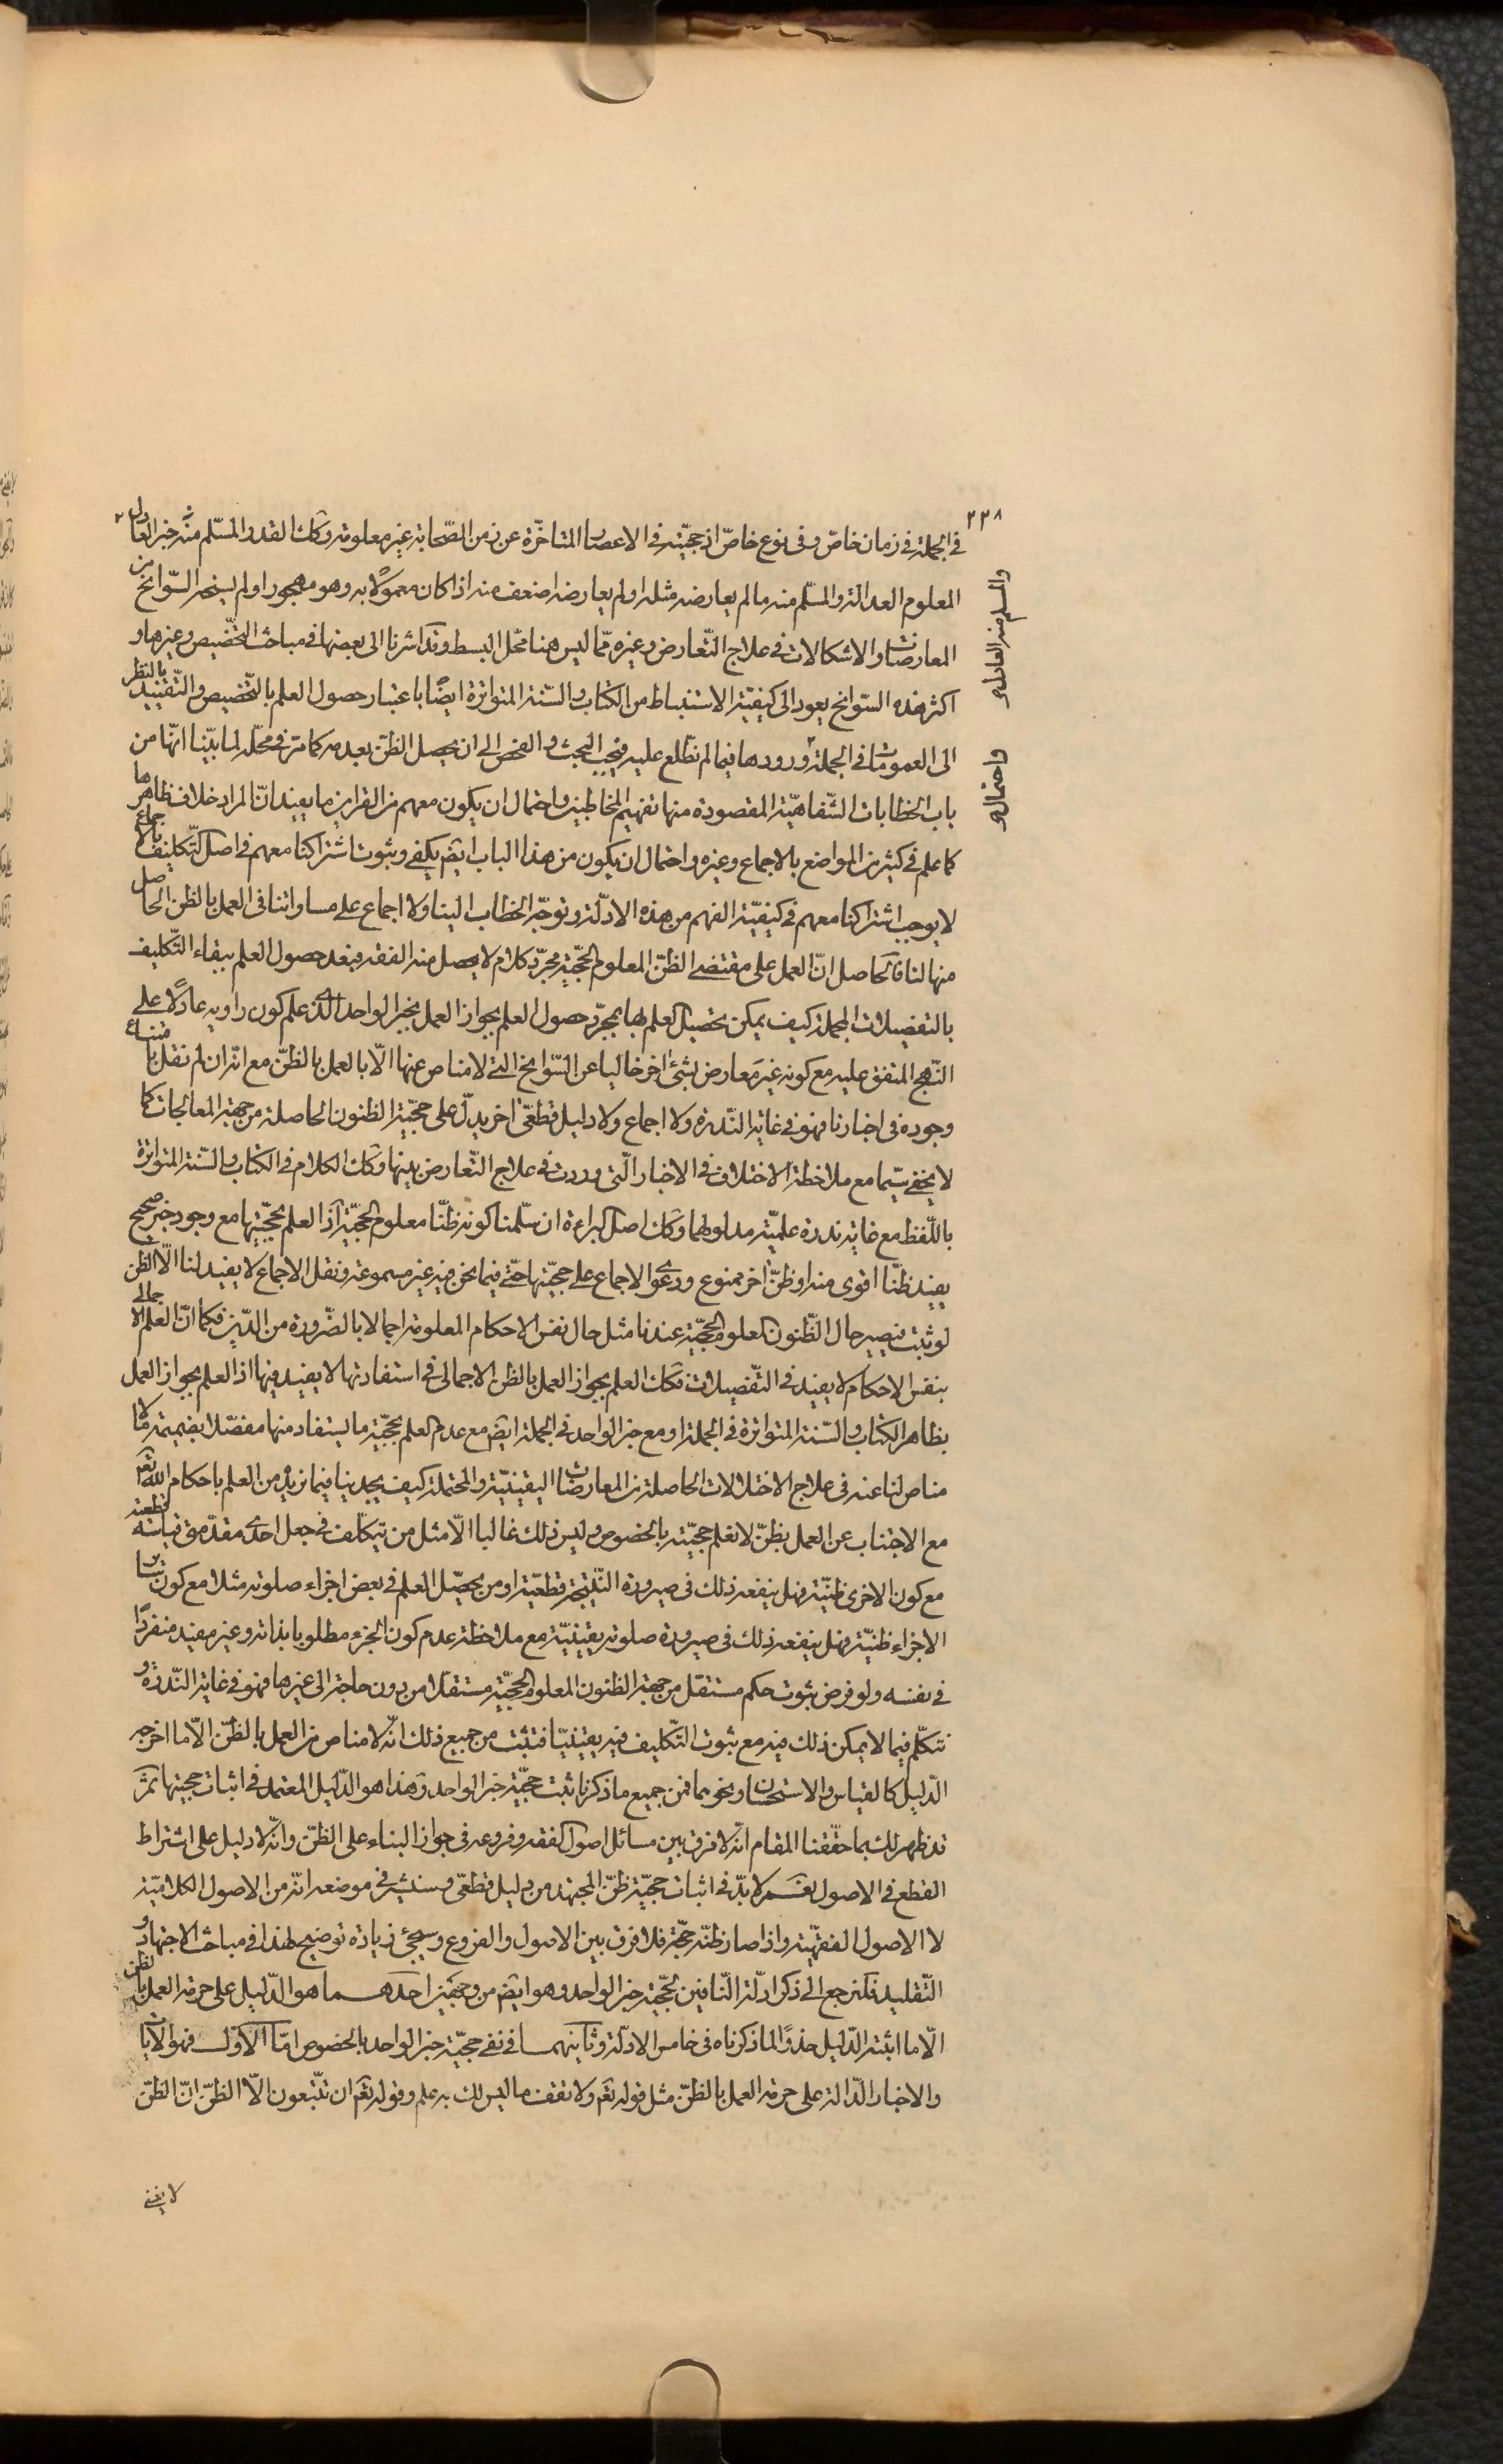 ٢٣٨
في الجملة في زمان خاصّ وفي نوع خاصّ اذ حجيّته في الاعصار المتاخّرة عن زمن الصّحابة غير معلومة وكك القدر المسلّم منه خبر العادل
المعلوم العدالة والمسلّم منه ما لم يعارضه مثله او لم يعارضه اضعف منه اذا كان معمولًا به وهو مهجورا ولم يسنح السّوانح من
المعارضات والاشكالات في علاج التّعارض وغيره ممّا ليس هنا محّل البسط وقد اشرنا الى بعضها في مباحث التّخصيص وغيرها و
اكثر هذه السّوانح يعود الى كيفيّة الاستنباط من الكتاب والسّنة المتواترة ايضًا باعتبار حصول العلم بالتّخصيص والتّقييد بالنظر
الى العمومات في الجملة وورودها فيما لم نطّلع عليه فيجب البحث والفحص الى ان يحصل الظنّ بعدمه كما مرّ في محّله لما بيّنا انّها من
باب الخطابات الشّفاهيّة المقصودة منها تفهيم المخاطبين واحتمال ان يكون معهم من القراين ما يفيد انّ المراد خلاف ظاهرها
كما علم في كثير من المواضع بالاجماع وغيره واحتمال ان يكون من هذا الباب ايضم يكفي وثبوت اشتراكنا معهم في اصل التّكليف بالاجماع
لا يوجب اشتراكنا معهم في كيفيّة الفهم من هذه الادّلة وتوجّه الخطاب الينا ولا اجماع على مساواتنا في العمل بالظن الحاصل
منها لنا فالحاصل انّ العمل على مقتضى الظنّ المعلوم الحجّية مجرّد كلام لا يحصل منه الفقه فبعد حصول العلم ببقاء التّكليف
بالتفصيلات المجملة كيف يمكن تحصيل العلم بها بمجرّد حصول العلم بجواز العمل بخبر الواحد الّذى علم كون راويه عادلًا على
النّهج المتفق عليه مع كونه غير معارض بشئ اخر خاليا عن السّوانح التي لا مناص عنها الّا بالعمل بالظنّ مع انّه ان لم نقل بامتناع
وجوده في اخبارنا فهو في غاية النّدرة ولا اجماع ولا دليل قطعّى اخر يدلّ على حجّية الظنون الحاصلة من جهة المعالجات كما
لا يخفى سيّما مع ملاحظة الاختلاف في الاخبار الّتي وردت في علاج التّعارض بينها وكك الكلام في الكتاب والسّنة المتواترة
باللّفظ مع غاية ندرة علميّة مدلولها وكك اصل البراءة ان سلّمنا كونه ظنّا معلوم الحجيّة اذ العلم بحجّيتها مع وجود خبر صحيح
يفيد ظنّا اقوى منه او ظنّ اخر ممنوع ودعوى الاجماع على حجيّتها حتّى فيما نحن فيه غير مسموعة ونقل الاجماع لا يفيد لنا الّا الظن
لو ثبت فيصير حال الظّنون المعلوم الحجيّة عندنا مثل حال نفس الاحكام المعلومة اجمالا بالضّرورة من الدّين فكما انّ العلم الاجمالي
بنفس الاحكام لا يفيد في التّفصيلات فكك العلم بجواز العمل بالظنّ الاجمالى في استفادتها لا يفيد فيها اذ العلم بجواز العمل
بظاهر الكتاب والسّنة المتواترة في الجملة او مع خبر الواحد في الجملة ايضم مع عدم العلم بحجيّة ما يستفاد منها مفصّلا بضميمة ممّا لا
مناص لنا عنه في علاج الاختلالات الحاصلة من المعارضات اليقينيّة والمحتملة كيف يجدينا فيما نريد من العلم باحكام الله تعم
مع الاجتناب عن العمل بظنّ لا نعلم حجيّته بالخصوص وليس ذلك غالبا الّا مثل من يتكلّف في جعل احدى مقدّمتى قياسه قطعية
مع كون الاخرى ظنيّة فهل ينفعه ذلك في صيرورة النّتيجة قطعيّة او من يحصّل العلم في بعض اجزاء صلوته مثلا مع كون سائر
الاجزاء ظنيّة فهل ينفعه ذلك في صيرورة صلوته يقينيّة مع ملاحظة عدم كون الجزء مطلوبا بذاته وغير مفيد منفردًا
في نفسه ولو فرض ثبوت حكم مستقل من جهة الظنون المعلوم الحجيّة مستقلا من دون حاجة الى غيرها فهو في غاية النّدرة و
نتكلّم فيما لا يمكن ذلك فيه مع ثبوت التّكليف فيه يقينيّا فثبت من جميع ذلك انّه لا مناص من العمل بالظنّ الّا ما اخرجه
الدّليل كالقياس والاستحسان ونحوهما فمن جميع ما ذكرنا ثبت حجيّة خبر الواحد وهذا هو الدّليل المعتمد في اثبات حجيتها ثمّ
قد ظهر لك بما حقّقنا المقام انّه لا فرق بين مسائل اصول الفقه وفروعه في جواز البناء على الظنّ وانّه لا دليل على اشتراط
القطع في الاصول نعم لا بدّ في اثبات حجيّة ظنّ المجتهد من دليل قطعّى وسنشير في موضعه انّه من الاصول الكلاميّة
لا الاصول الفقهيّة واذا صار ظنّه حجّة فلا فرق بين الاصول والفروع وسيجئ زيادة توضيح لهذا في مباحث الاجتهاد و
التّقليد فلنرجع الى ذكر ادلّة النّافين لحجيّة خبر الواحد وهو ايضم من وجهين احدهما هو الدّليل على حرمة العمل بالظن
الّا ما اثبته الدّليل حذوًا لما ذكرناه في خامس الادلّة وثانيهما في نفى حجيّة خبر الواحد بالخصوص امّا الاوّل فهو الايات
والاخبار الدّالة على حرمة العمل بالظنّ مثل قوله تعم ولا تقف ما ليس لك به علم وقوله تعم ان تتّبعون الّا الظنّ انّ الظنّ
لا يغنى
والمسلم منه العادل
واحتمال